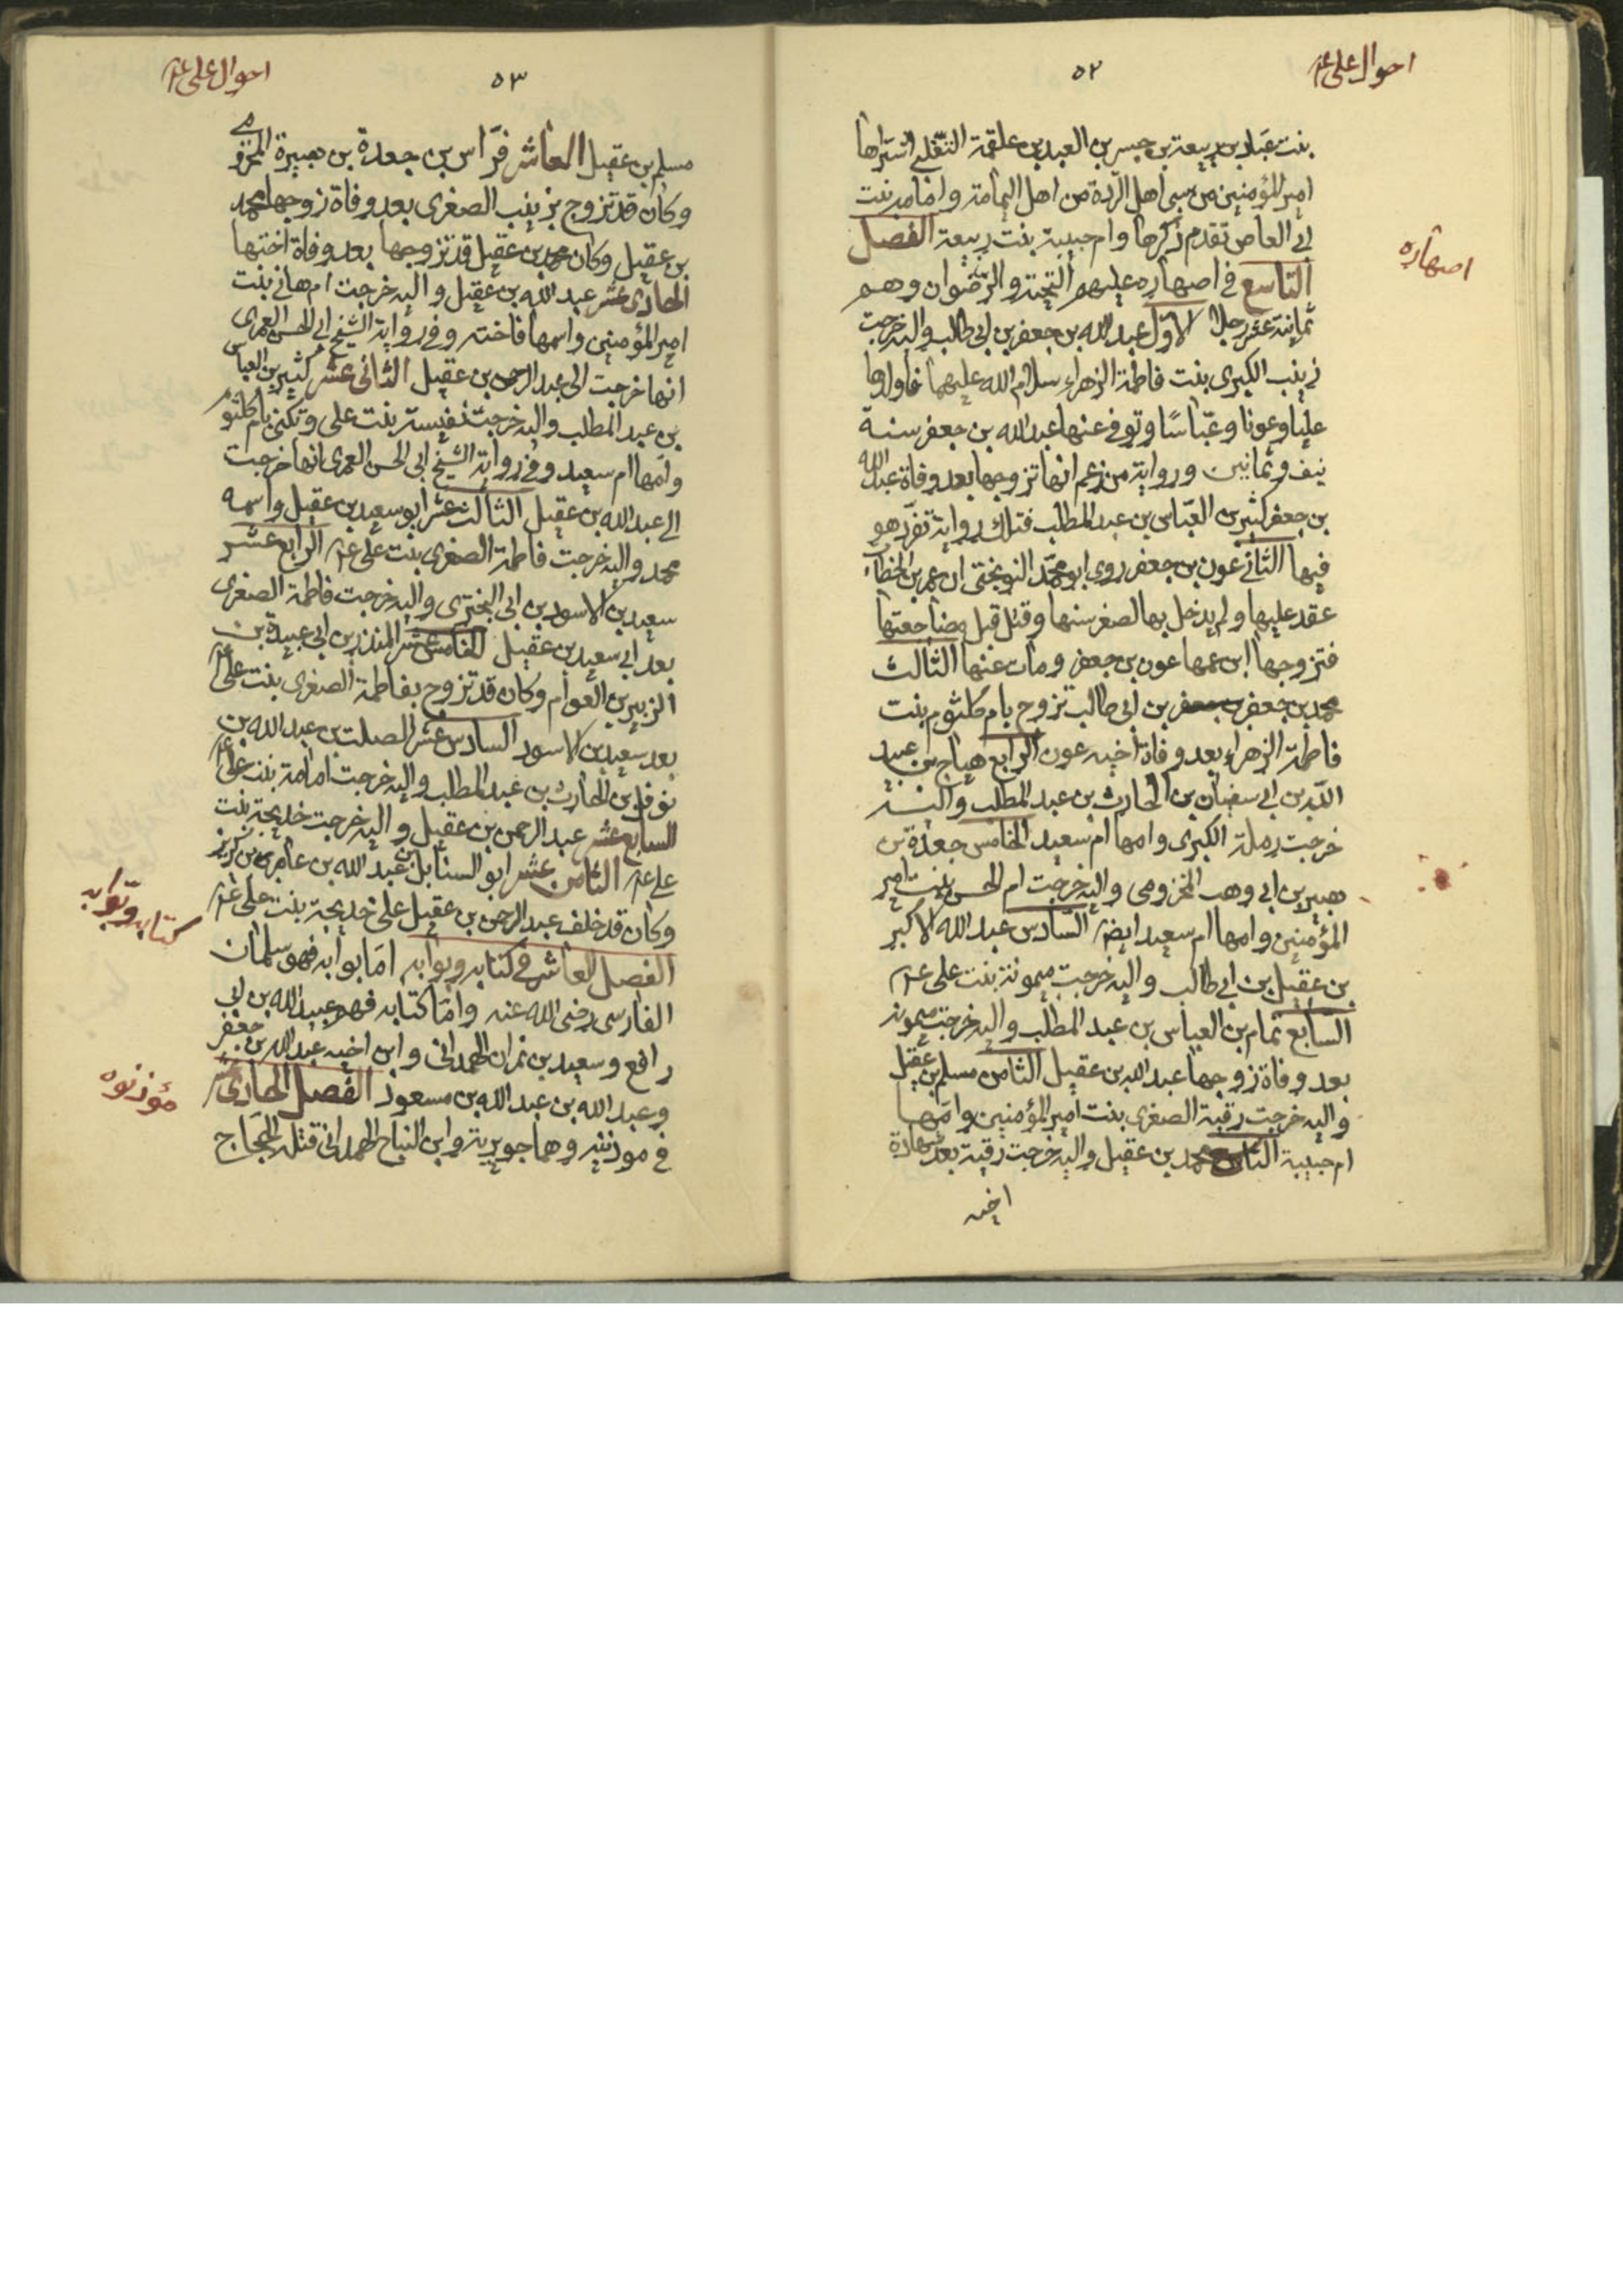 احوال علی ع‍
٥٢
بنت عباد بن ربيعة بن جبير بن العبد بن علقمة التغلبي اشتراها
امير المؤمنين من سبى اهل الردة من اهل اليمامة وامامة بنت
ابي العاص تقدم ذكرها وام حبيبة بنت ربيعة الفصل
اصهاره
التاسع في اصهاره عليهم التحية والرضوان وهم
ثمانية عشر رجلا الاول عبد الله بن جعفر بن ابي طالب واليه خرجت
زينب الكبرى بنت فاطمة الزهراء سلام الله عليهما فاولدها
عليا وعونا وعباسا وتوفى عنها عبد الله بن جعفر سنة
نيف وثمانين ورواية من زعم انها تزوجها بعد وفاة عبد الله
بن جعفر كثير بن العباس بن عبد المطلب فتلك رواية تفرد هو
فيها الثاني عون بن جعفر روى ابو محمد النوبختي ان عمر بن الخطاب
عقد عليها ولم يدخل بها لصغر سنها وقتل قبل مضاجعتها
فتزوجها ابن عمها عون بن جعفر ومات عنها الثالث
محمد بن جعفر بن ابي طالب تزوج بام كلثوم بنت
فاطمة الزهراء بعد وفاة اخيه عون الرابع هياج بن عبد
الله بن ابي سفيان بن الحارث بن عبد المطلب واليه
خرجت رملة الكبرى وامها ام سعيد الخامس جعدة بن
هبير بن ابي وهب المخزومى واليه خرجت ام الحسن بنت امير
المؤمنين وامها ام سعيد ايضا السادس عبد الله الاكبر
بن عقيل بن ابي طالب واليه خرجت ميمونة بنت على ع‍
السابع تمام بن العباس بن عبد المطلب واليه خرجت ميمونة
بعد وفاة زوجها عبد الله بن عقيل الثامن مسلم بن عقيل
واليه خرجت رقية الصغرى بنت امير المؤمنين وامها
ام حبيبة التاسع محمد بن عقيل واليه خرجت رقية بعد شهادة
اخيه
احوال علی ع‍
٥٣
مسلم بن عقيل العاشر فراس بن جعدة بن هبيرة المخزومي
وكان قد تزوج بزينب الصغرى بعد وفاة زوجها محمد
بن عقيل وكان محمد بن عقيل قد تزوجها بعد وفاة اختها
الحادى عشر عبد الله بن عقيل واليه خرجت ام هاني بنت
امير المؤمنين واسمها فاخته وفي رواية الشيخ ابي الحسن العمرى
انها خرجت الى عبد الرحمن بن عقيل الثانى عشر كثير بن العباس
بن عبد المطلب واليه خرجت نفيسة بنت على وتكنى بام كلثوم
وامها ام سعيد وفي رواية الشيخ ابى الحسن العمرى انها خرجت
الى عبد الله بن عقيل الثالث عشر ابو سعيد بن عقيل واسمه
محمد واليه خرجت فاطمة الصغرى بنت على ع‍ الرابع عشر
سعيد بن الاسود بن ابى البخترى واليه خرجت فاطمة الصغرى
بعد ابي سعيد بن عقيل الخامس عشر المنذر بن ابي عبيدة بن
الزبير بن العوام وكان قد تزوج بفاطمة الصغرى بنت على ع‍
بعد سعيد بن الاسود السادس عشر الصلت بن عبد الله بن
نوفل بن الحارث بن عبد المطلب واليه خرجت امامة بنت على ع‍
السابع عشر عبد الرحمن بن عقيل واليه خرجت خديجة بنت
على ع‍ الثامن عشر ابو السنابل بن عبد الله بن عامر بن كريز
وكان قد خلف عبد الرحمن بن عقيل على خديجة بنت على ع‍
كتابه وبوابه
الفصل العاشر في كتابه وبوابه اما بوابه فهو سلمان
الفارسى رضى الله عنه واما كتابه فهو عبيد الله بن ابي
رافع وسعيد بن نمران الهمدانى وابن اخيه عبد الله بن جعفر
مؤذنوه
وعبد الله بن عبد الله بن مسعود الفصل الحادى عشر
في موذنيه وهما جويرية وابن النباح الهمدانى قتله الحجاج